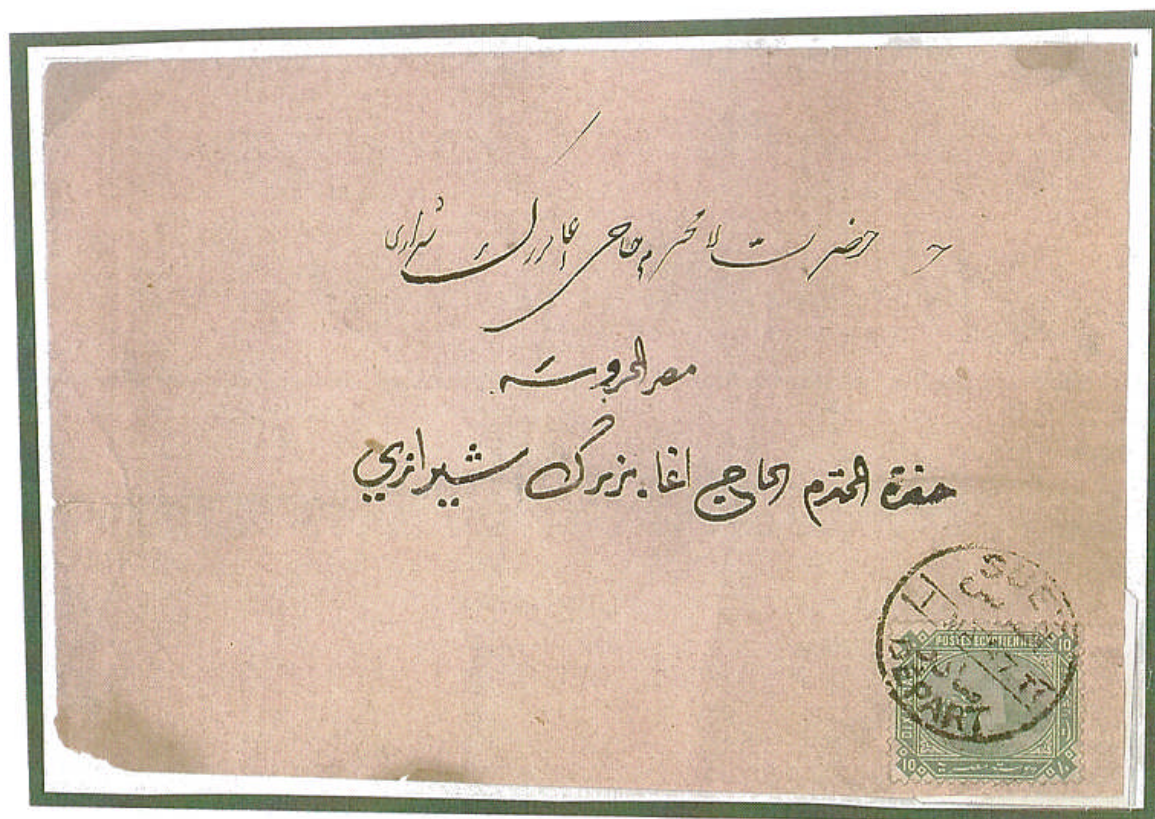 حضرت لا محترم حاجی اغا بزرگ شیرازی
مصر المحروسه
حضرة المحترم الحاج اغا بزرگ شيرازي
SUEZ
DEPART
POSTES EGYPTIENNES
10 10
10